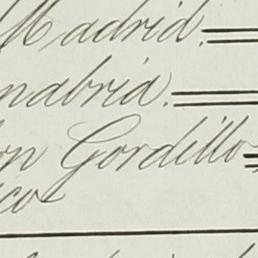 Madrid.
nabria.
on Gordillo
ico